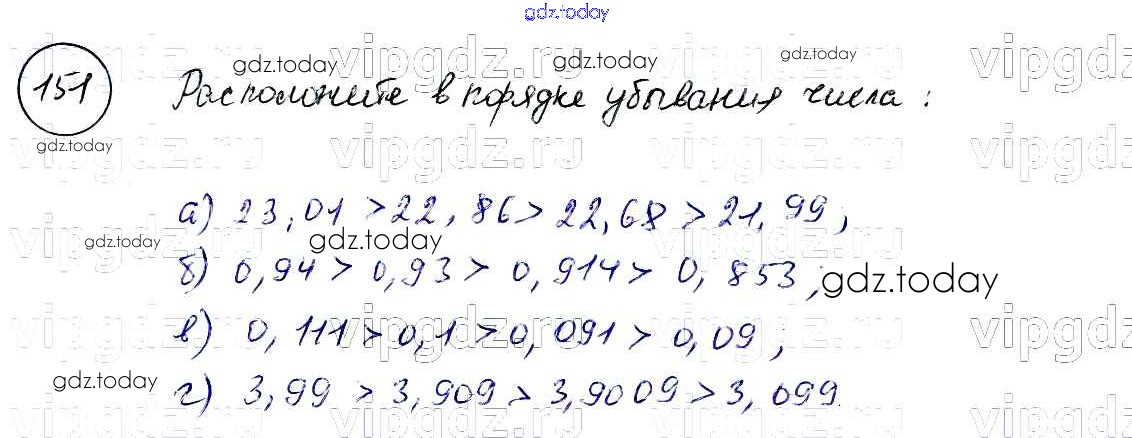 gdz.today
vipgdz.ru vipgdz.ru vipgdz.ru vipgdz
151 Расположите в порядке убывания числа:
gdz.today gdz.today gdz.today
gdz.today
vipgdz.ru vipgdz.ru vipgdz.ru vipgdz
а) 23,01 > 22,86 > 22,68 > 21,99;
gdz.today gdz.today
vipgdz.ru vipgdz.ru vipgdz.ru vipgdz
б) 0,94 > 0,93 > 0,914 > 0,853;
gdz.today
в) 0,111 > 0,1 > 0,091 > 0,09;
vipgdz.ru vipgdz.ru vipgdz.ru vipgdz
gdz.today
г) 3,99 > 3,909 > 3,9009 > 3,099.
vipgdz.ru vipgdz.ru vipgdz.ru vipgdz